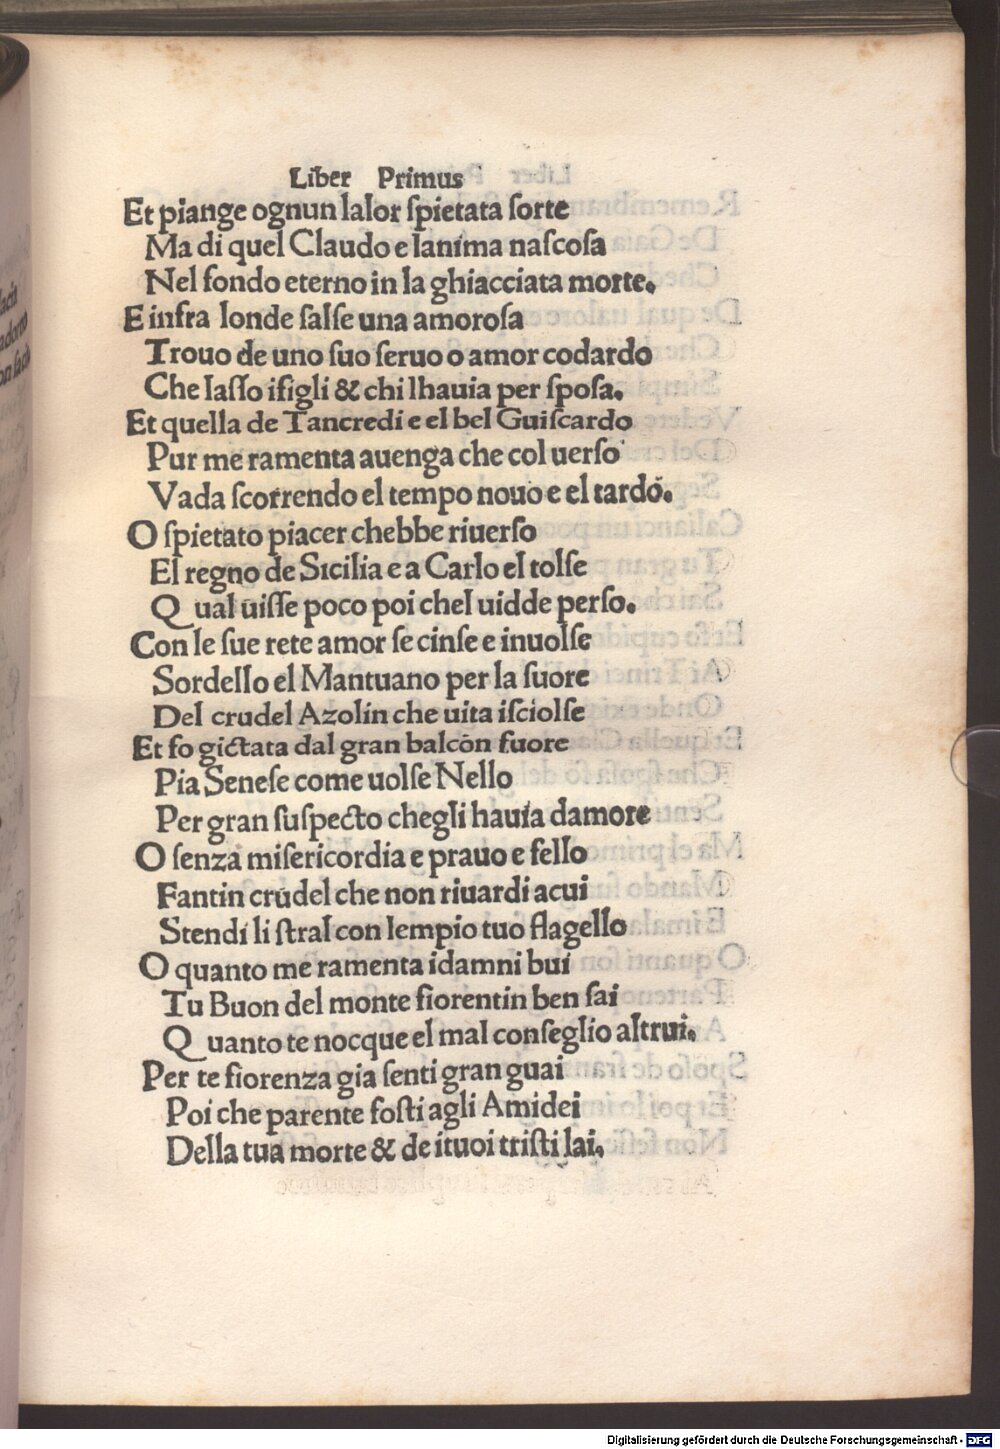 Liber Primus
Et piange ognun lalor ſpietata ſorte
Ma di quel Claudo e lanima naſcoſa
Nel fondo eterno in la ghiacciata morte.
E infra londe ſalſe una amoroſa
Trouo de uno ſuo ſeruo o amor codardo
Che laſſo iſigli & chi lhauia per ſpoſa.
Et quella de Tancredi e el bel Guiſcardo
Pur me ramenta auenga che col uerſo
Vada ſcorrendo el tempo nouo e el tardo.
O ſpietato piacer chebbe riuerſo
El regno de Sicilia e a Carlo el tolſe
Q ual uiſſe poco poi chel uidde perſo.
Con le ſue rete amor ſe cinſe e inuolſe
Sordello el Mantuano per la ſuore
Del crudel Azolin che uita iſciolſe
Et fo gictata dal gran balcon fuore
Pia Seneſe come uolſe Nello
Per gran ſuſpecto chegli hauia damore
O ſenza miſericordia e prauo e fello
Fantin crudel che non riuardi acui
Stendi li ſtral con lempio tuo flagello
O quanto me ramenta idamni bui
Tu Buon del monte fiorentin ben ſai
Q uanto te nocque el mal conſeglio altrui.
Per te fiorenza gia ſenti gran guai
Poi che parente foſti agli Amidei
Della tua morte & de ituoi triſti lai.
Digitalisierung gefördert durch die Deutsche Forschungsgemeinschaft - DFG